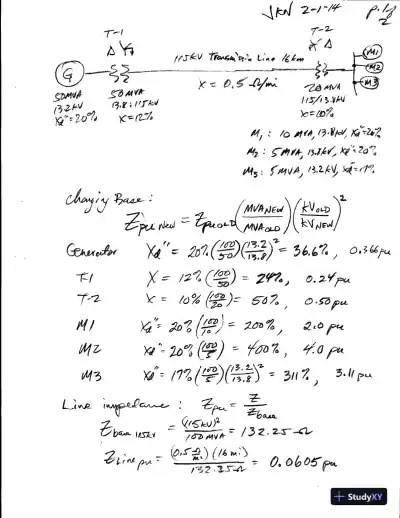 JKN 2-1-14 p. 1/2
T-1 T-2
Δ Y Y Δ
115KV Transmission Line 16km
G
M1
M2
M3
50MVA
13.2KV
Xd"=20%
50 MVA
13.8:115KV
X=12%
X = 0.5 Ω/mi
20 MVA
115/13.8KV
X=10%
M1: 10 MVA, 13.8KV, Xd"=20%
M2: 5 MVA, 13.8KV, Xd"=20%
M3: 5 MVA, 13.2KV, Xd"=17%
Changing Base:
Zpu NEW = Zpu OLD (MVA NEW / MVA OLD) (KV OLD / KV NEW)²
Generator Xd" = 20% (100/50) (13.2/13.8)² = 36.6%, 0.366 pu
T-1 X = 12% (100/50) = 24%, 0.24 pu
T-2 X = 10% (100/20) = 50%, 0.50 pu
M1 Xd" = 20% (100/10) = 200%, 2.0 pu
M2 Xd" = 20% (100/5) = 400%, 4.0 pu
M3 Xd" = 17% (100/5) (13.2/13.8)² = 311%, 3.11 pu
Line impedance: Zpu = Z / Zbase
Zbase 115KV = (115KV)² / 100 MVA = 132.25 Ω
Zline pu = (0.5 Ω/mi) (16 mi) / 132.25 Ω = 0.0605 pu
StudyXY